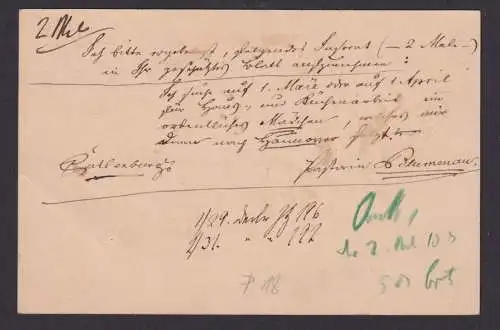 2 Mal
Ich bitte ergebenst, folgendes Inserat (– 2 Male –)
in Ihr geschätztes Blatt aufzunehmen :
Ich suche auf 1. März oder auf 1. April
für Haus- und Küchenarbeit ein
ordentliches Mädchen, welches mir
dann nach Hannover folgt.
Catlenburg.
Pastorin
1/29.
2/31. " "
P 18